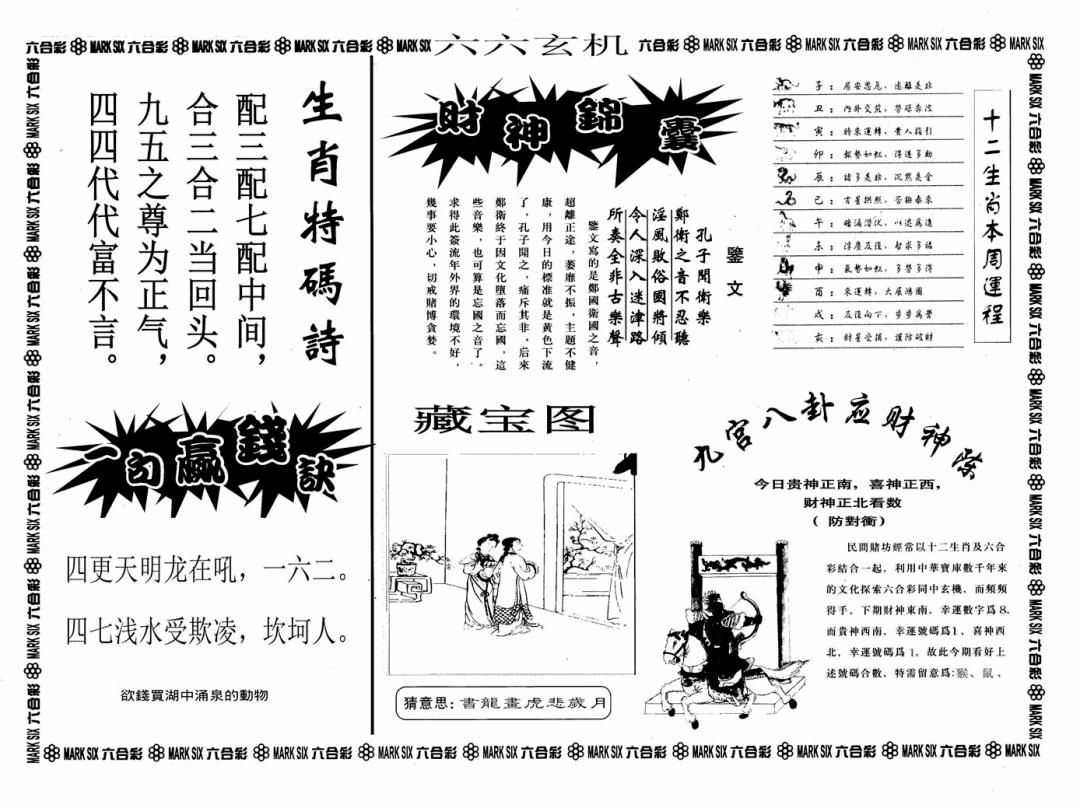 六合彩 MARK SIX 六合彩 MARK SIX 六合彩 MARK SIX 六合彩 MARK SIX 六六玄机 六合彩 MARK SIX 六合彩 MARK SIX 六合彩 MARK SIX 六合彩 MARK SIX
生肖特碼詩
配三配七配中间，
合三合二当回头。
九五之尊为正气，
四四代代富不言。
一句贏錢訣
四更天明龙在吼，一六二。
四七浅水受欺凌，坎坷人。
欲錢買湖中涌泉的動物
財神錦囊
鑒文
孔子聞衛樂
鄭衛之音不忍聽
淫風敗俗國將傾
令人深入迷津路
所奏全非古樂聲
鑒文寫的是鄭國衛國之音，
超離正途，萎靡不振，主題不健
康，用今日的標准就是黄色下流
了，孔子聞之，痛斥其非，后來
鄭衛終于因文化墮落而忘國，這
些音樂，也可算是忘國之音了。
求得此簽流年外界的環境不好，
幾事要小心，切戒賭博貪婪。
十二生肖本周運程
子：居安思危，遠離是非
丑：内外交煎，勞碌奔波
寅：時來運轉，貴人指引
卯：報勢如虹，得道多助
辰：諸多是非，沉默是金
巳：吉星拱照，否極泰來
午：暗涌潛伏，以退爲進
未：浮塵反復，智求多福
申：氣勢如虹，多勞多得
酉：來運轉，大展鴻圖
戌：反復向下，步步爲營
亥：財星受損，謹防破財
藏宝图
猜意思：書龍畫虎悲歲月
九宫八卦应财神紫
今日贵神正南，喜神正西，
财神正北看数
（防對衝）
民間賭坊經常以十二生肖及六合
彩結合一起，利用中華寶庫數千年來
的文化探索六合彩同中玄機，而頻頻
得手。下期財神東南，幸運數字爲8，
而貴神西南，幸運號碼爲1，喜神西
北，幸運號碼爲1，故此今期看好上
述號碼合數，特需留意爲:猴、鼠、
MARK SIX 六合彩 MARK SIX 六合彩 MARK SIX 六合彩 MARK SIX 六合彩 MARK SIX 六合彩 MARK SIX 六合彩 MARK SIX 六合彩 MARK SIX 六合彩 MARK SIX 六合彩 MARK SIX